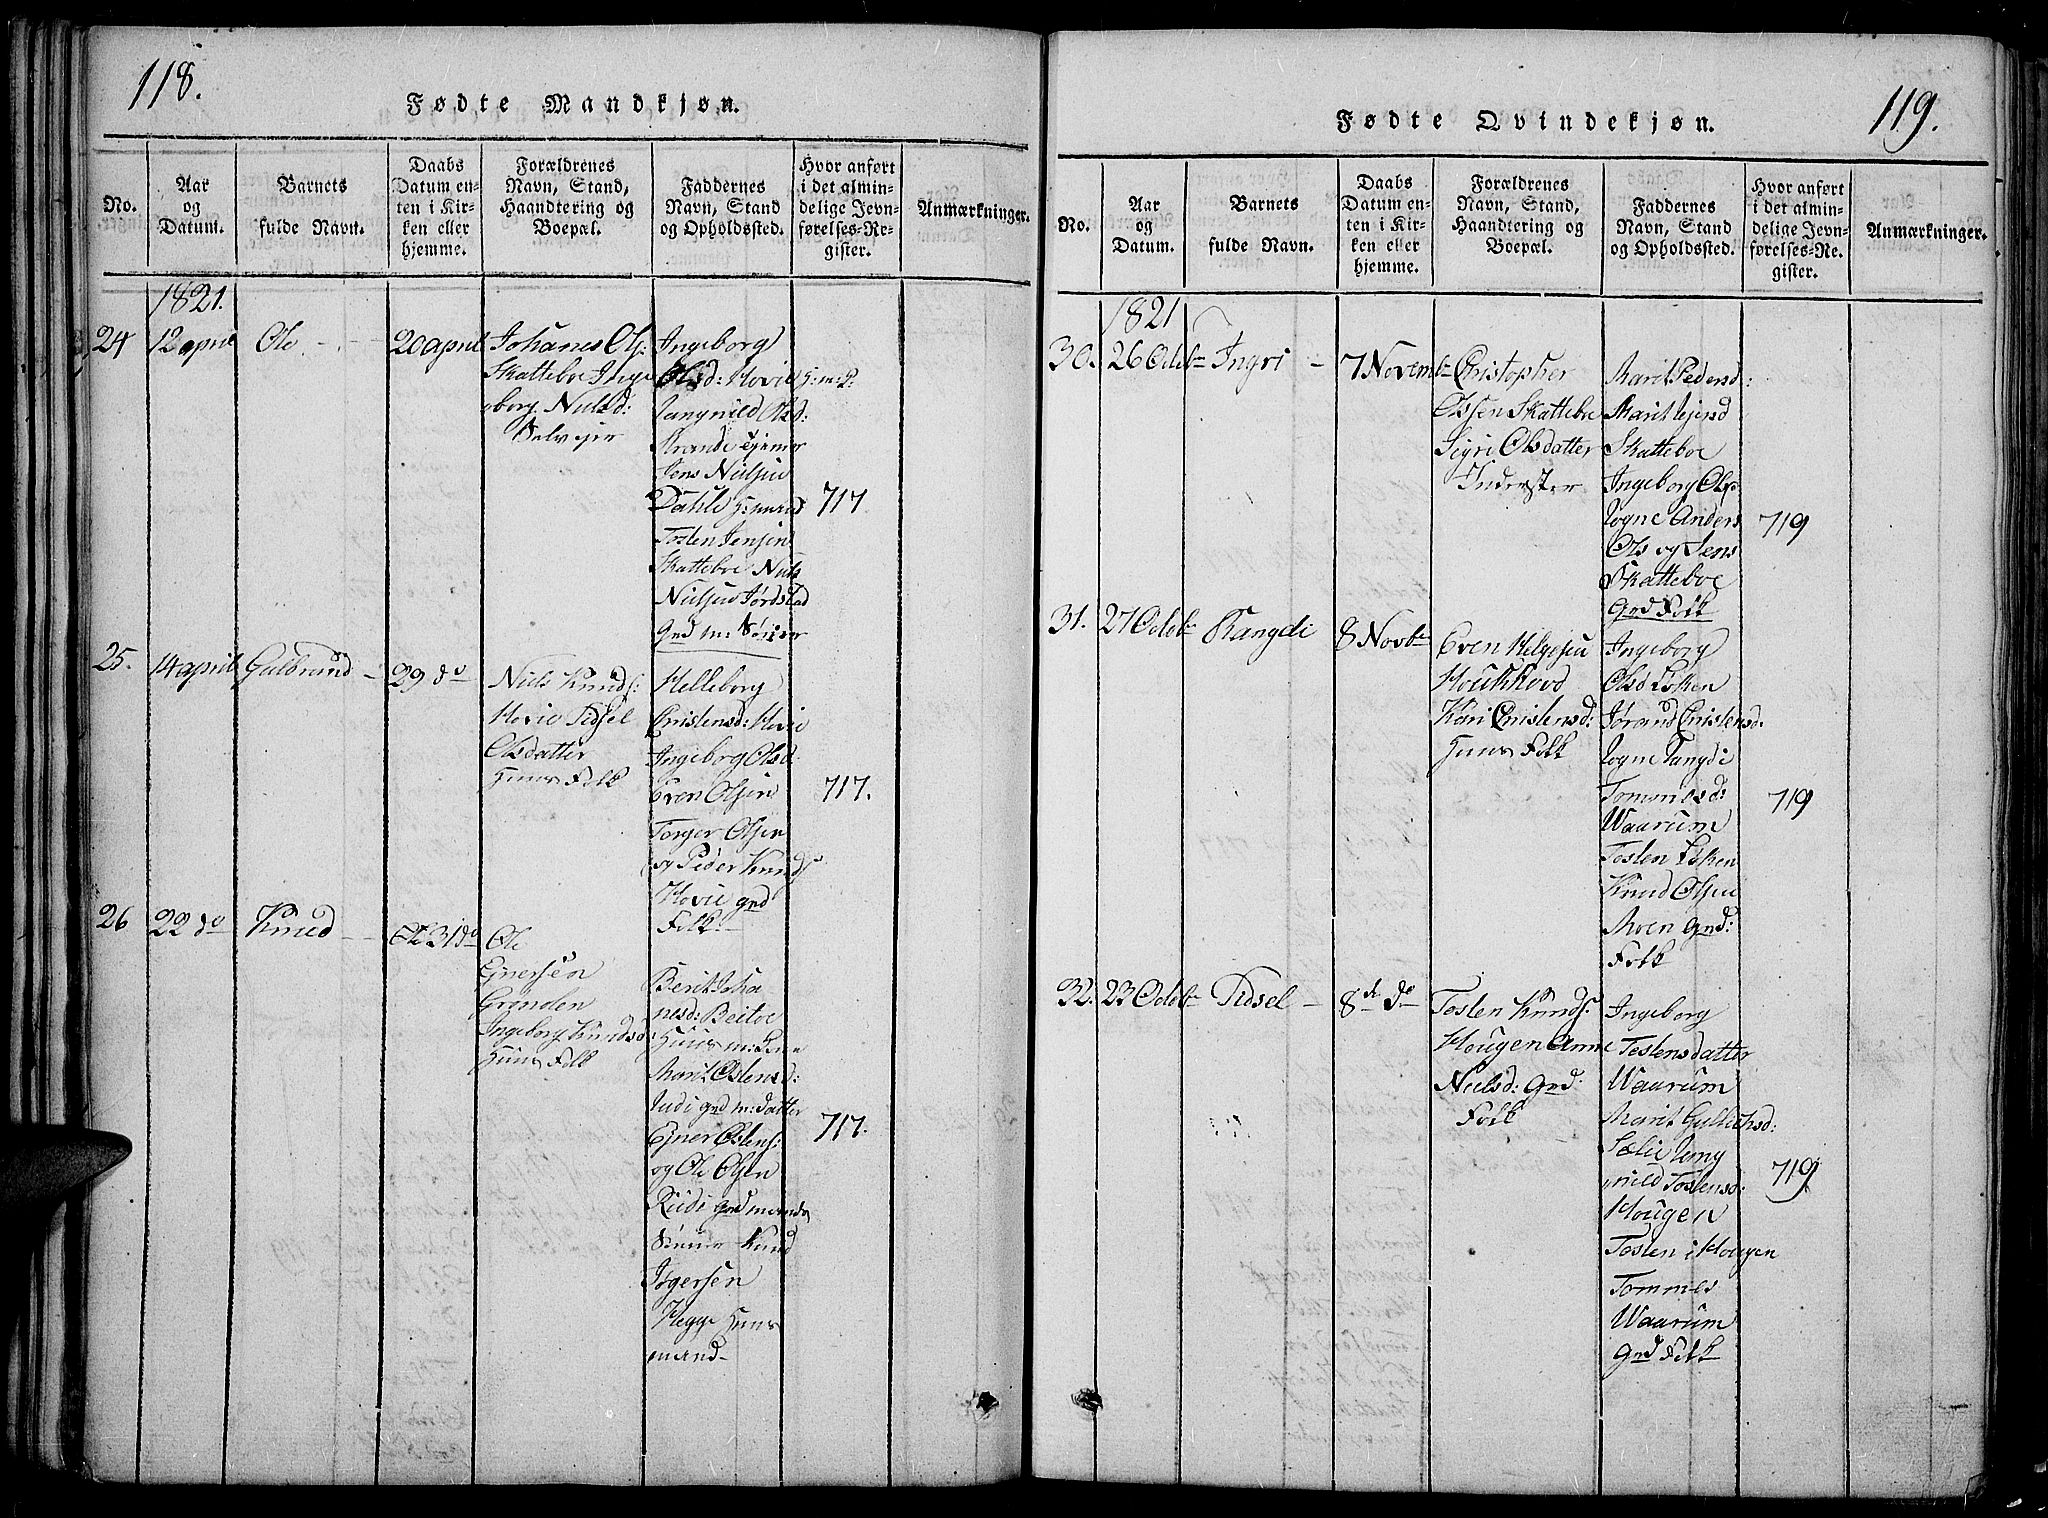 118.
Fødte Mandkjøn.
No.
Aar
og
Datum.
Barnets
fulde Navn.
Daabs
Datum en-
ten i Kir-
ken eller
hjemme.
Forældrenes
Navn, Stand,
Haandtering og
Boepæl.
Faddernes
Navn, Stand
og Opholdssted.
Hvor anført
i det almin-
delige Jevn-
førelses-Re-
gister.
Anmærkninger.
1821.
24
12 april
Ole
20 april
Johanes Ols:
Skatteboe Inge
borg Nielsd:
Selvejer
Ingeborg
Olsd: Hovie
Rangnild Olsd:
Strande tjener
Jens Nielsen
Dahle Huusmand
Tosten Jensen
Skatteboe Niels
Nielsen Jordstad
Grd m: Sønner
717
25.
14 april
Gulbrand
29 do
Niels Knuds:
Hovie Sidsel
Olsdatter
Huus Folk
Helleborg
Cristensd: Hovie
Ingeborg Olsd:
Even Olsen
Torger Olsen
og Peder Knuds
Hovie grd
Folk
717.
26
22 do
Knud
31 do
Ole
Ejnersen
Grønden
Ingeborg Knudsd:
Huus Folk
Berit Joha
nesd: Beitoe
Huus m: Kone
Marit Østensd:
Rudi grd m: datter
Ejner Østens:
og Ole Olsen
Rudi grd mands
Sønner Knud
Asgersen
Hegge Huus
mand
717.
119.
Fødte Qvindekjøn.
No.
Aar
og
Datum.
Barnets
fulde Navn.
Daabs
Datum en-
ten i Kir-
ken eller
hjemme.
Forældrenes
Navn, Stand,
Haandtering og
Boepæl.
Faddernes
Navn, Stand
og Opholdssted.
Hvor anført
i det almin-
delige Jevn-
førelses-Re-
gister.
Anmærkninger.
1821
30.
26 Octbr
Ingri
7 Novembr
Christopher
Olssen Skatteboe
Sigri Olsdatter
Inderster
Marit Pedersd:
Marit Jensd
Skatteboe
Ingeborg Olsd:
Rogne Anders
Ols og Jens
Skatteboe
Grd Folk
719
31.
27 Octobr
Rangdi
8 Novbr
Even Helgesen
Houkkood
Kari Cristensd:
Huus Folk
Ingeborg
Olsd Løken
Jørand Cristensd.
Rogne Rangdi
Tommesd:
Waarum
Tosten Løken
Knud Olsen
Moen Grd:
Folk
719
32.
23 Octobr
Sidsel
8de do
Tosten Knuds:
Hougen Anne
Nielsd: Grd:
Folk
Ingeborg
Tostensdatter
Waarum
Marit Gullichsd:
Sælie Rang
nild Tostensd:
Hougen
Tosten i Hougen
Tommes
Waarum
Grd Folk
719